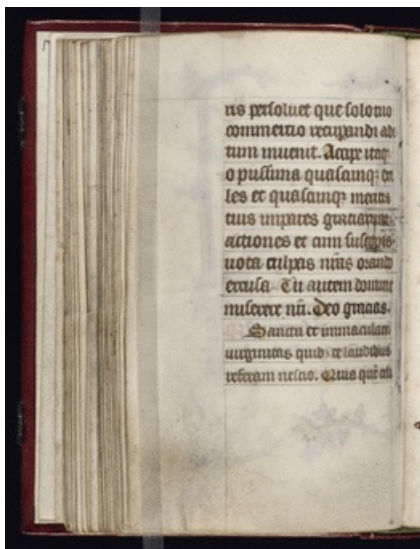 ris persoluet que solo tuo
commercio recuperandi adi
tum inuenit. Accipe itaq;
o pussima quascunq; exi
les et quascunq; meritis
tuis impares gratiarum
actiones et cum susceperis
uota culpas nr̄as orando
excusa. Tu autem domine
miserere nr̄i. Deo gracias.
Sancta et immaculata
uirginitas quib; te laudibus
referam nescio. Quia quē celi